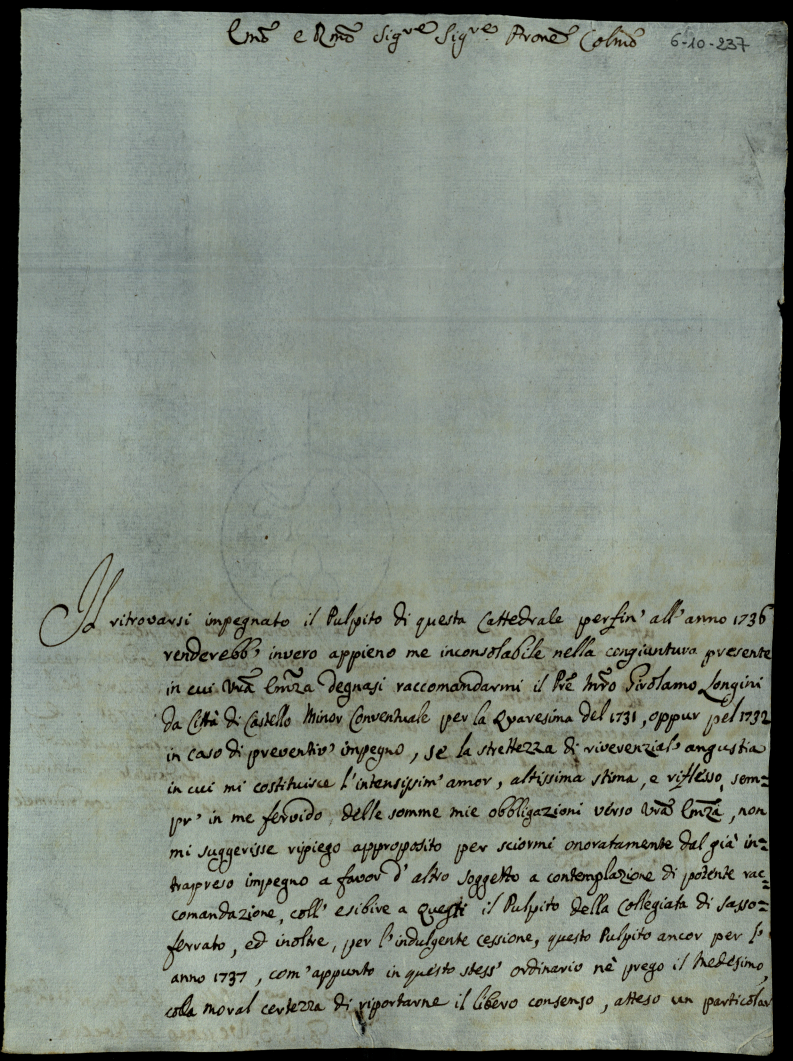 Emo e Rmo Sigre Sigre Prone Colmo 6-10-237
Il ritrovarsi impegnato il Pulpito di questa Cattedrale perfin' all' anno 1736
renderebb' invero appieno me inconsolabile nella congiuntura presente
in cui Vra Emza degnasi raccomandarmi il Pre Mro Girolamo Longini
da Città di Castello Minor Conventuale per la Quaresima del 1731, oppur pel 1732
in caso di preventiv' impegno, se la strettezza di riverenzial' angustia
in cui mi costituisce l'intensissim' amor, altissima stima, e riflesso, sem=
pr' in me fervido, delle somme mie obbligazioni verso Vra Emza, non
mi suggerisse ripiego approposito per sciormi onoratamente dal già in=
trapreso impegno a favor d' altro soggetto a contemplazione di potente rac=
comandazione, coll' esibire a questi il Pulpito della Collegiata di Sasso=
ferrato, ed inoltre, per l'indulgente cessione, questo Pulpito ancor per l'
anno 1737, com' appunto in questo stess' ordinario nè prego il Medesimo,
colla moral certezza di riportarne il libero consenso, atteso un particolar